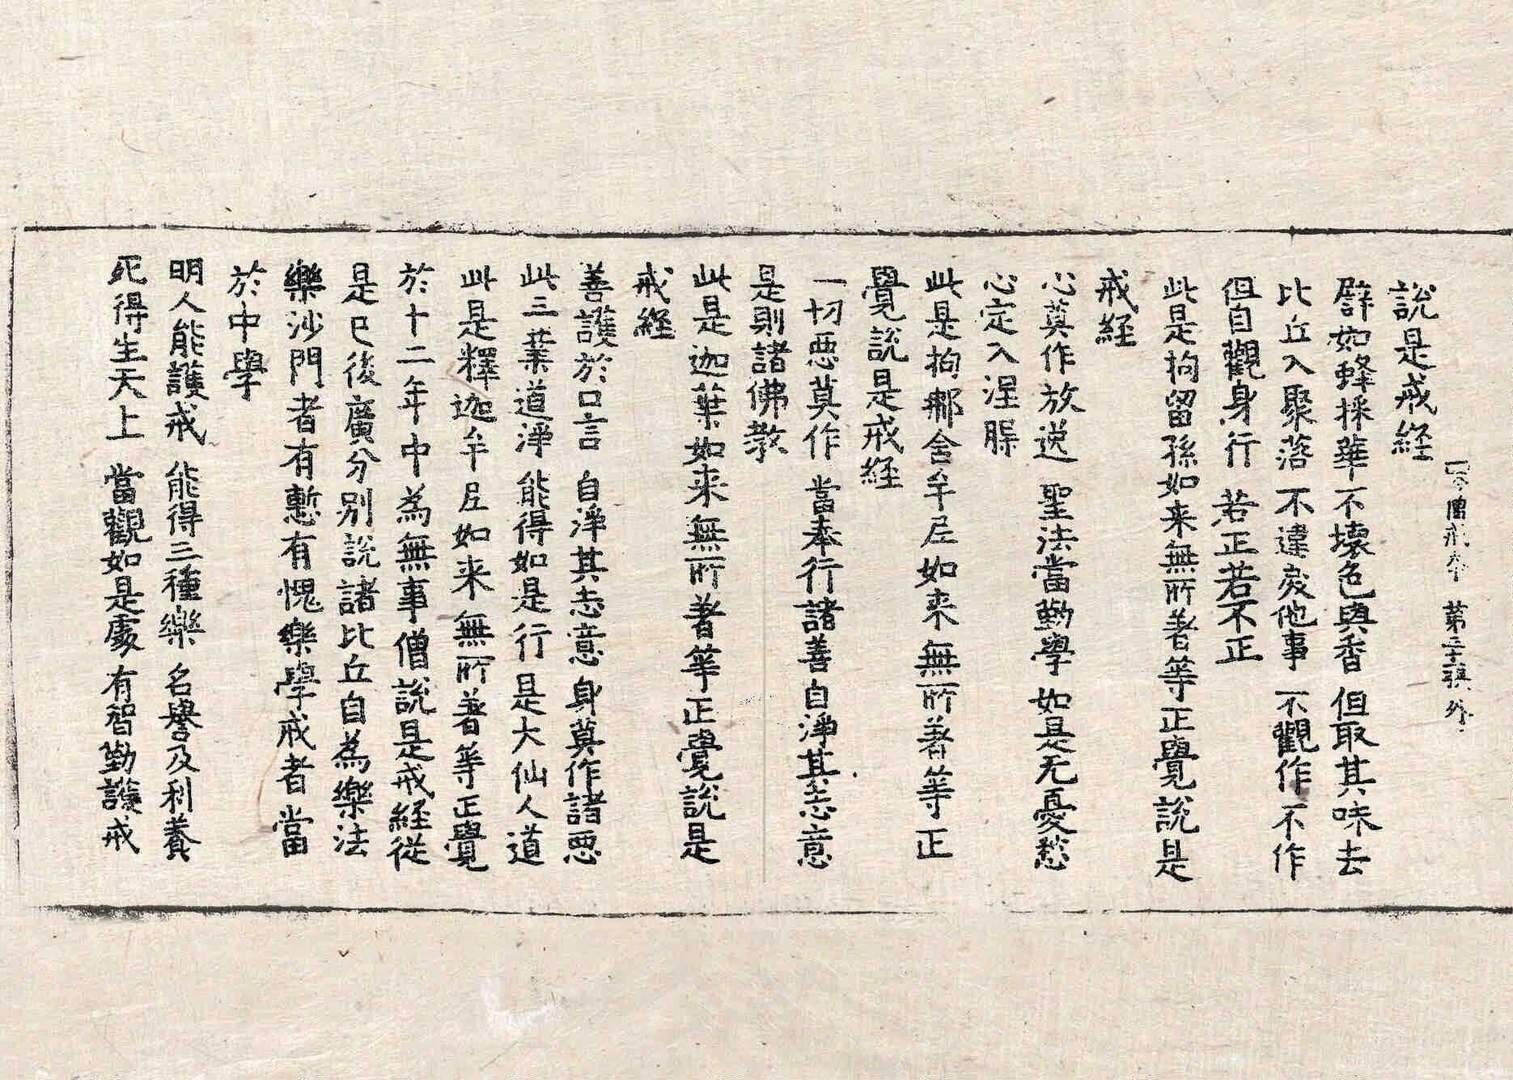 說是戒経
四分僧戒本 第二十張 外
譬如蜂採華不壞色與香 但取其味去
比丘入聚落 不違戾他事 不觀作不作
但自觀身行 若正若不正
此是拘留孫如来無所著等正覺說是
戒経
心莫作放逸 聖法當勤學 如是无憂愁
心定入涅槃
此是拘那舍牟尼如来無所著等正
覺說是戒経
一切惡莫作 當奉行諸善 自淨其志意
是則諸佛教
此是迦葉如来無所著等正覺說是
戒経
善護於口言 自淨其志意 身莫作諸惡
此三業道淨 能得如是行 是大仙人道
此是釋迦牟尼如来無所著等正覺
於十二年中為無事僧說是戒経從
是已後廣分別說諸比丘自為樂法
樂沙門者有慙有愧樂學戒者當
於中學
明人能護戒 能得三種樂 名譽及利養
死得生天上 當觀如是處 有智勤護戒